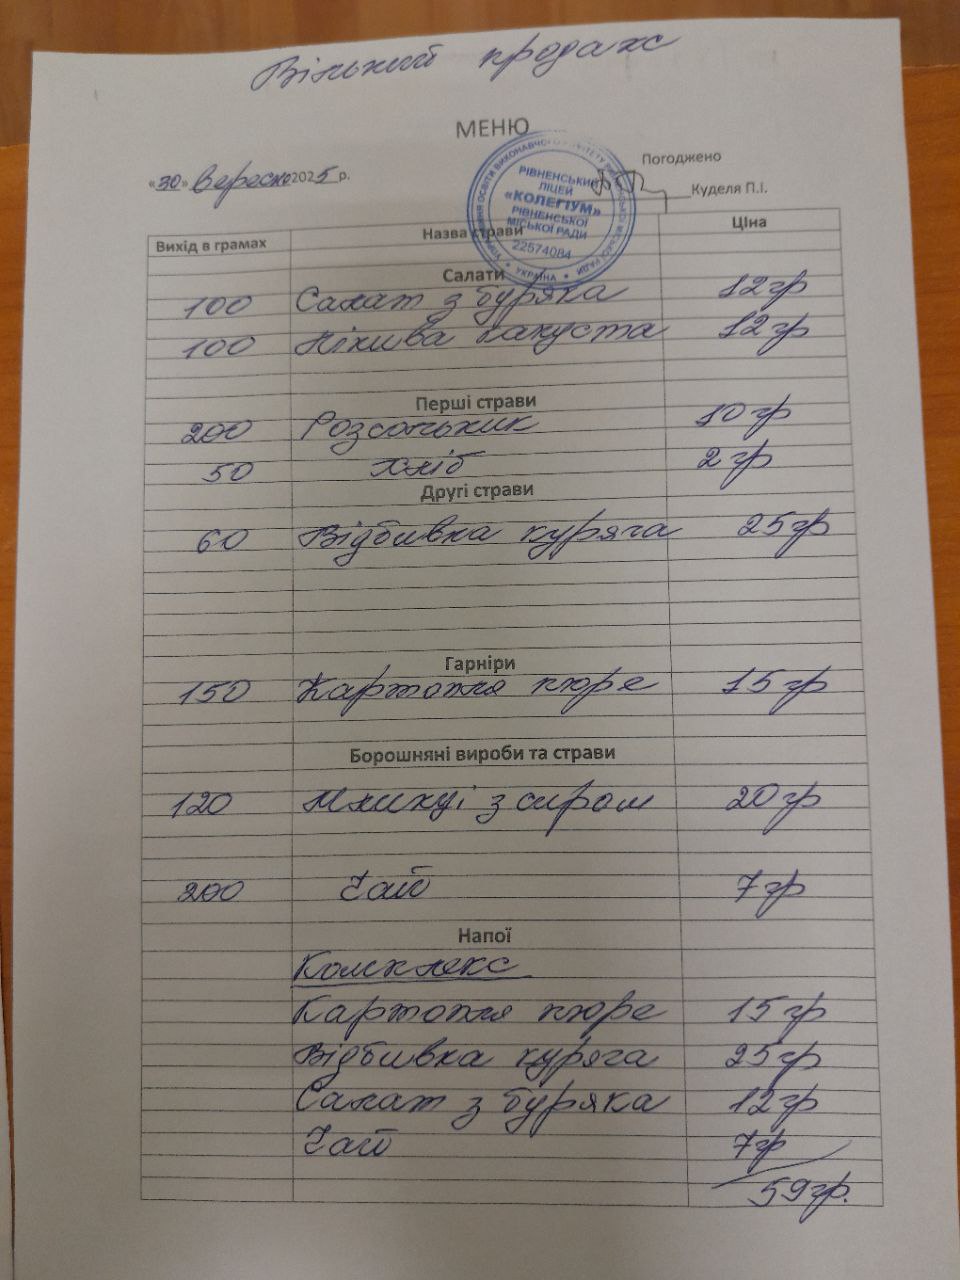 Вільний продаж
МЕНЮ
«30» Вересня 2025 р.
Погоджено
Куделя П.І.
УПРАВЛІННЯ ОСВІТИ ВИКОНАВЧОГО КОМІТЕТУ РІВНЕНСЬКОЇ МІСЬКОЇ РАДИ
РІВНЕНСЬКИЙ
ЛІЦЕЙ
«КОЛЕГІУМ»
РІВНЕНСЬКОЇ
МІСЬКОЇ РАДИ
22574084
* УКРАЇНА *
Вихід в грамах Назва страви Ціна
Салати
100 Салат з буряка 12гр
100 Пікива капуста 12гр
Перші страви
200 Розсольник 10гр
50 хліб 2гр
Другі страви
60 Відбивка куряча 25гр
Гарніри
150 Картопля пюре 15гр
Борошняні вироби та страви
120 Млинці з сиром 20гр
200 Чай 7гр
Напої
Комплекс
Картопля пюре 15гр
Відбивка куряча 25гр
Салат з буряка 12гр
Чай 7гр
59гр.